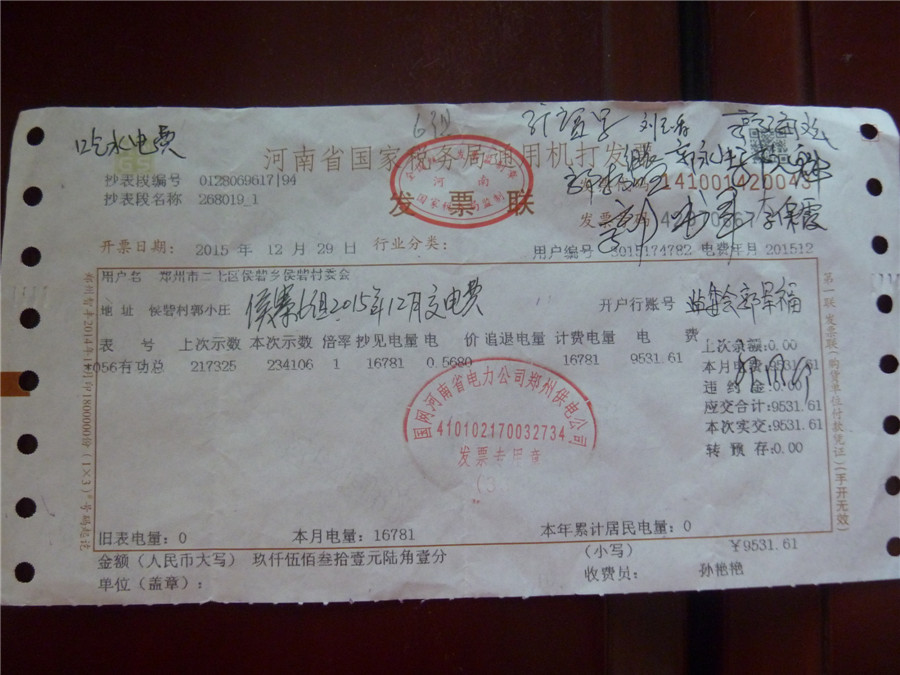 吃水电费
6组
刘巧香
河南省国家税务局通用机打发票
抄表段编号 0128069617|94
141001420043
抄表段名称 268019_1
发票联
河南
国家税务局监制
李保霞
开票日期: 2015 年 12 月 29 日 行业分类:
用户编号 3015174782 电费年月 201512
用户名 郑州市二七区侯寨乡侯寨村委会
地址 侯寨村郭小庄
侯寨6组2015年12月交电费
开户行账号
监督会郭景福
表号 上次示数 本次示数 倍率 抄见电量 电价 追退电量 计费电量 电费
056有功总 217325 234106 1 16781 0.5680 16781 9531.61
上次余额:0.00
本月电费:9531.61
违约金:0.00
应交合计:9531.61
本次实交:9531.61
转预存:0.00
国网河南省电力公司郑州供电公司
410102170032734
发票专用章
(3)
旧表电量:0 本月电量:16781 本年累计居民电量:0
金额(人民币大写) 玖仟伍佰叁拾壹元陆角壹分 (小写) ¥9531.61
单位(盖章): 收费员: 孙艳艳
第一联 发票联(购货单位付款凭证)(手开无效)